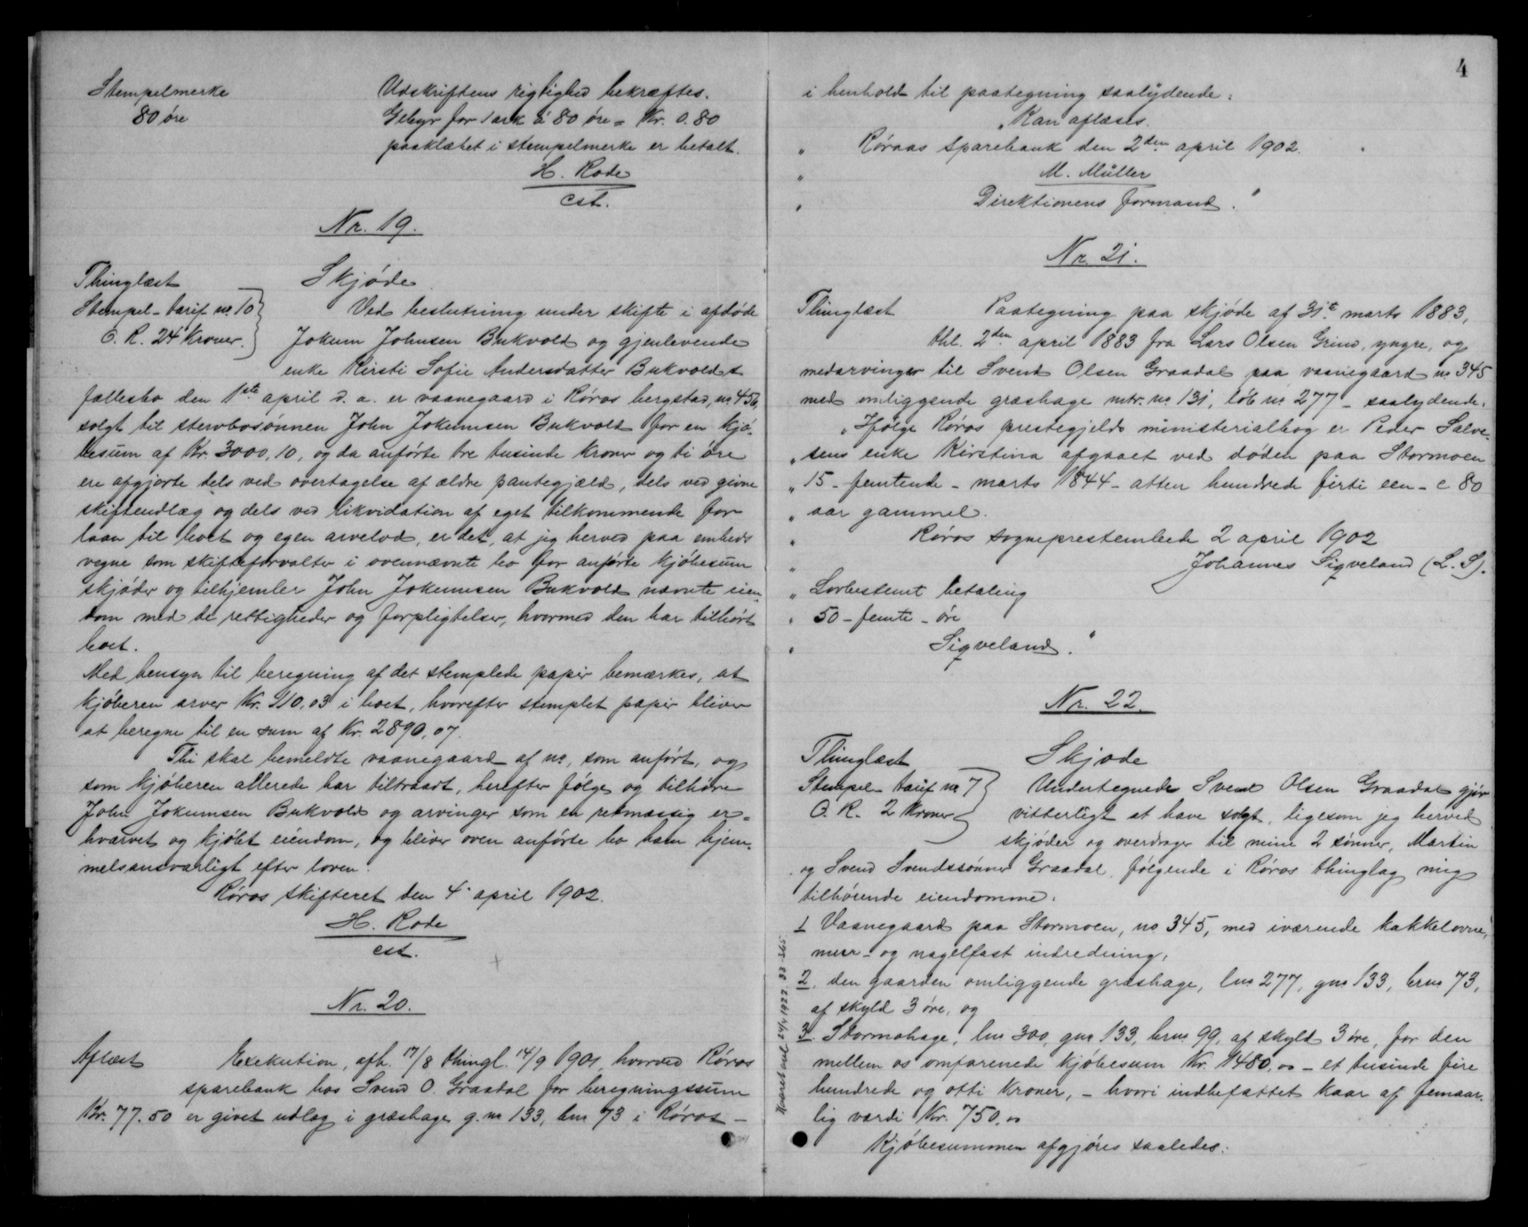 Stempelmerke
80 øre
Udskriftens rigtighed bekræftes.
Gebyr for 1 ark à 80 øre = Kr. 0.80
paaklæbet i stempelmerke er betalt.
H. Rode
cst.
Nr. 19.
Thinglæst
Stempel-tarif no 10
O. R. 24 Kroner.
Skjøde.
Ved beslutning under skifte i afdøde
Jokum Johnsen Bukvold og gjenlevende
enke Kirsti Sofie Andersdatter Bukvolds
fællesbo den 1ste april d. a. er vaanegaard i Røros bergstad, no 456,
solgt til stervbosønnen John Jokumsen Bukvold for en kjø-
besum af Kr. 3000,10, og da anførte tre tusinde kroner og ti øre
ere afgjorte dels ved overtagelse af ældre pantegjæld, dels ved givne
skifteudlæg og dels ved likvidation af eget tilkommende for
laan til boet og egen arvelod, er det, at jeg herved paa embeds
vegne som skifteforvalter i ovennævnte bo for anførte kjøbesum
skjøder og tilhjemler John Jokumsen Bukvold nævnte eien-
dom med de rettigheder og forpligtelser, hvormed den har tilhørt
boet.
Med hensyn til beregning af det stemplede papir bemærkes, at
kjøberen arver Kr. 110,03 i boet, hvorefter stemplet papir bliver
at beregne til en sum af Kr. 2890,07.
Thi skal bemeldte vaanegaard af no, som anført, og
som kjøberen allerede har tiltraadt, herefter følge og tilhøre
John Jokumsen Bukvold og arvinger som en retmæssig er-
hvervet og kjøbt eiendom, og bliver oven anførte bo ham hjem-
melsansvarligt efter loven.
Røros skifteret den 4. april 1902.
H. Rode
cst.
Nr. 20.
Aflæst
Exekution, afh. 17/8 thingl. 14/9 1901, hvorved Røros
sparebank hos Svend O. Graadal for beregningssum
Kr. 77.50 er givet udlæg i græshage g.no 133, bno 73 i Røros -
4
i henhold til paategning saalydende:
"Kan aflæses.
" Røraas Sparebank den 2den april 1902.
" M. Müller
" Direktionens formand."
Nr. 21.
Thinglæst
Paategning paa skjøde af 31te marts 1883,
thl. 2den april 1883 fra Lars Olsen Grind, yngre, og
medarvinger til Svend Olsen Graadal paa vaanegaard no 345
med omliggende græshage mtr. no 131, løb no 277 - saalydende:
"Ifølge Røros prestegjelds ministerialbog er Peder Salve-
" sens enke Kirstina afgaaet ved døden paa Stormoen
" 15 - femtende - marts 1844 - atten hundred firti een - c 80
" aar gammel.
" Røros sogneprestembede 2 april 1902
" Johannes Siqveland (L. S).
" Lovbestemt betaling
" 50 - femti - øre
" Siqveland."
Nr. 22.
Thinglæst
Stempel tarif no 7
O. R. 2 Kroner
Skjøde
Undertegnede Svend Olsen Graadal gjør
vitterligt at have solgt, ligesom jeg herved
skjøder og overdrager til mine 2 sønner, Martin
og Svend Svendssønner Graadal, følgende i Røros thinglag mig
tilhørende eiendomme:
1 Vaanegaard paa Stormoen, no 345, med iværende kakkelovne,
mur- og nagelfast indredning,
2. den gaarden omliggende græshage, lno 277, gno 133, brno 73,
af skyld 3 øre, og
3. Stormohage, lno 300, gno 133, brno 99, af skyld 3 øre, for den
mellem os omforenede kjøbesum Kr. 1480,00 - et tusinde fire
hundrede og otti kroner, - hvori indbefattet kaar af femaar-
lig værdi Kr. 750,00
Kjøbesummen afgjøres saaledes: